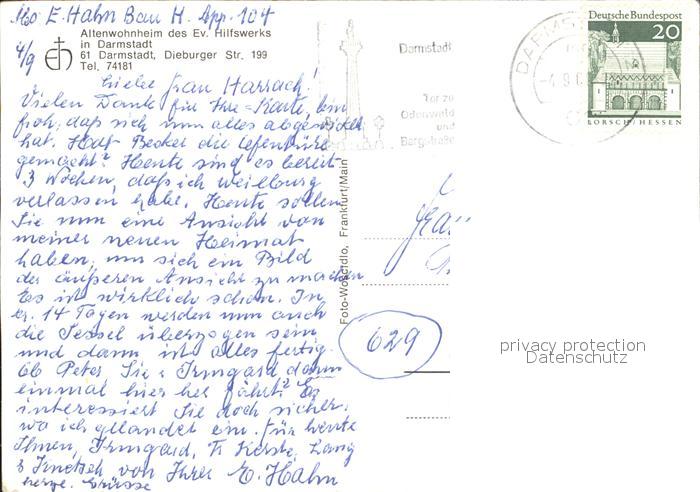 Abs. E. Hahn Bau H. App. 104
4/9
Altenwohnheim des Ev. Hilfswerks
in Darmstadt
61 Darmstadt, Dieburger Str. 199
Tel. 74181
Liebe Frau Harrach!
Vielen Dank für Ihre Karte, bin
froh, daß sich nun alles abgewickelt
hat. Hat Becker die
gemacht? Heute sind es bereits
3 Wochen, daß ich Weilburg
verlassen habe. Heute sollen
Sie nun eine Ansicht von
meiner neuen Heimat
haben, um sich ein Bild
der äußeren Ansicht zu machen
Es ist wirklich schön. In
cr. 14 Tagen werden nun auch
die Sessel überzogen sein
und dann ist alles fertig.
Ob Peter Sie & Irmgard dann
einmal hier her fährt? Es
interessiert Sie doch sicher,
wo ich gelandet bin. Für heute
Ihnen, Irmgard, Fr. Kerste, Lang
& von Ihrer E. Hahn
herzl. Grüsse
Foto-Woscidlo, Frankfurt/Main
DARMSTADT
-4.9.6
Darmstadt
Tor zu
Odenwald
und
Bergstraße
Deutsche Bundespost
20
LORSCH/HESSEN
629
privacy protection
Datenschutz